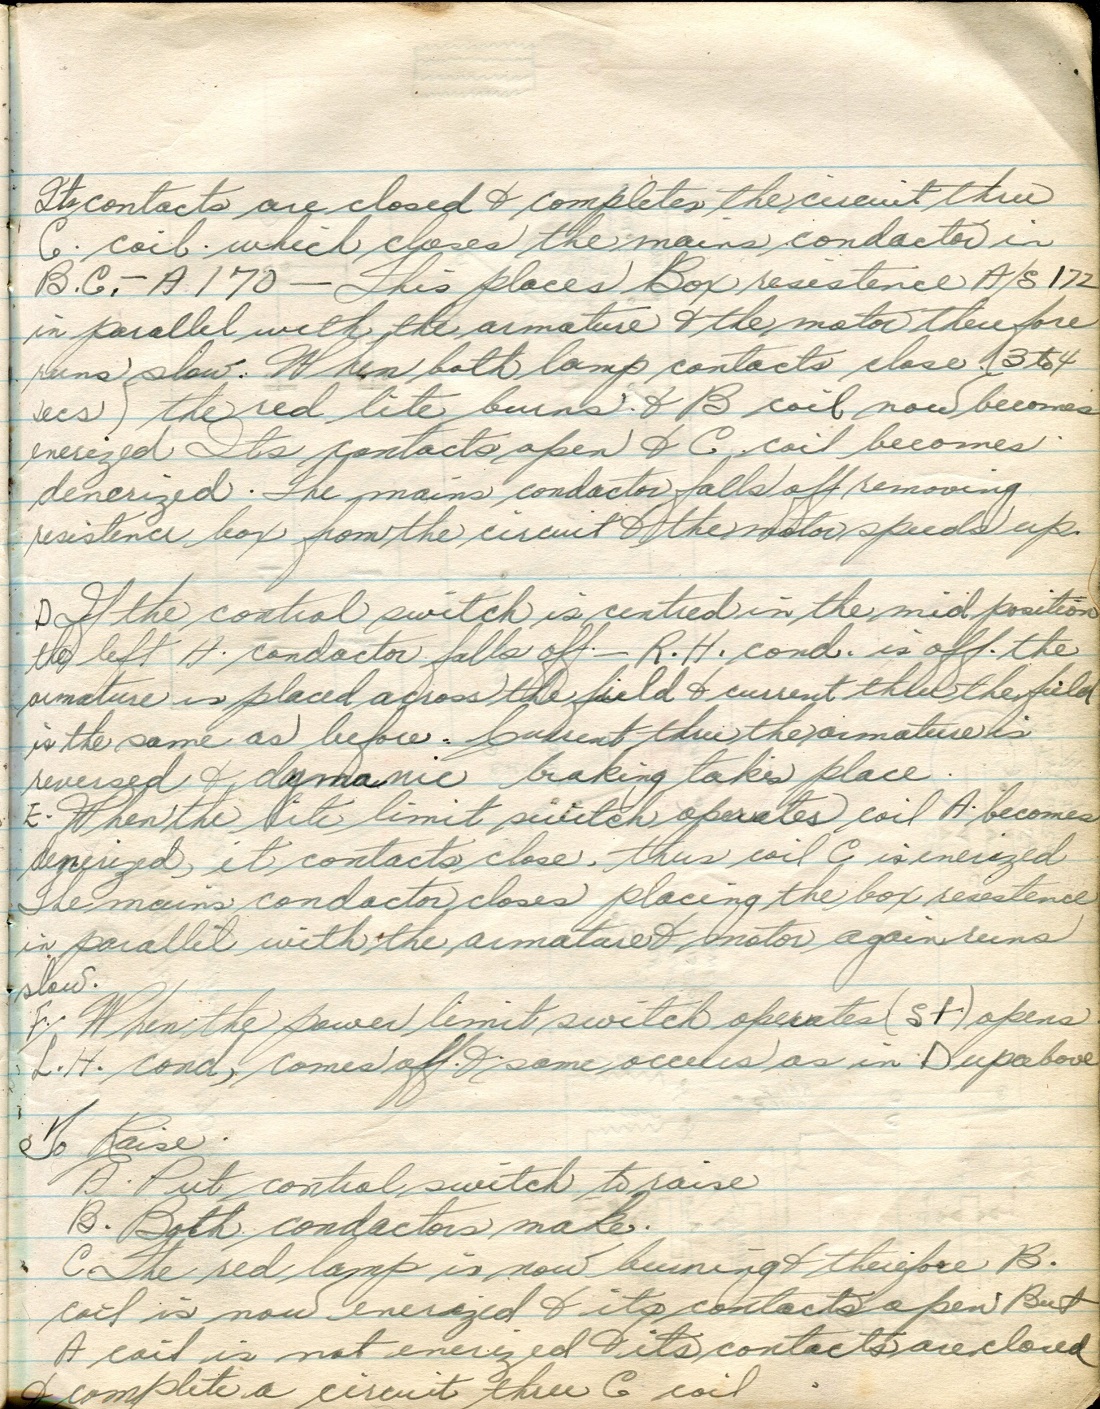 Its contacts are closed & completes the circuit thru
C. coil. which closes the mains conductor in
B.C. - A 170 — This places Box resistence A/S 172
in parallel with the armature & the motor therefore
runs slow. When both lamp contacts close (3 to 4
secs) the red lite burns. & B coil now becomes
enerized Its contacts open & C. coil becomes
denerized. The mains conductor falls off removing
resistence box from the circuit & the motor speeds up.
D If the control switch is centred in the mid position
the left H. conductor falls off. — R.H. cond. is off. the
armature is placed across the field & current thru the field
is the same as before. Current thru the armature is
reversed & dymanic braking takes place.
E. When the lite limit switch operates coil A. becomes
denerized, it contacts close. thus coil C is enerized
The mains conductor closes placing the box resistence
in parallel with the armature & motor again runs
slow.
F. When the power limit switch operates (St) opens
L.H. cond, comes off. & same occurs as in D up above
To Raise.
A. Put control switch to raise
B. Both conductors make.
C. The red lamp is now burning & therefore B.
coil is now enerized & its contacts open But
A coil is not enerized & its contacts are closed
& complete a circuit thru C coil